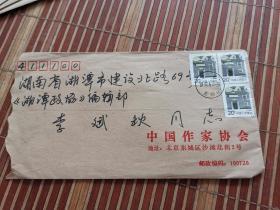 411100
湖南省湘潭市建设北路69号
《湘潭政协》编辑部
李斌钦同志
20
中国作家协会
地址：北京东城区沙滩北街2号
邮政编码：100720